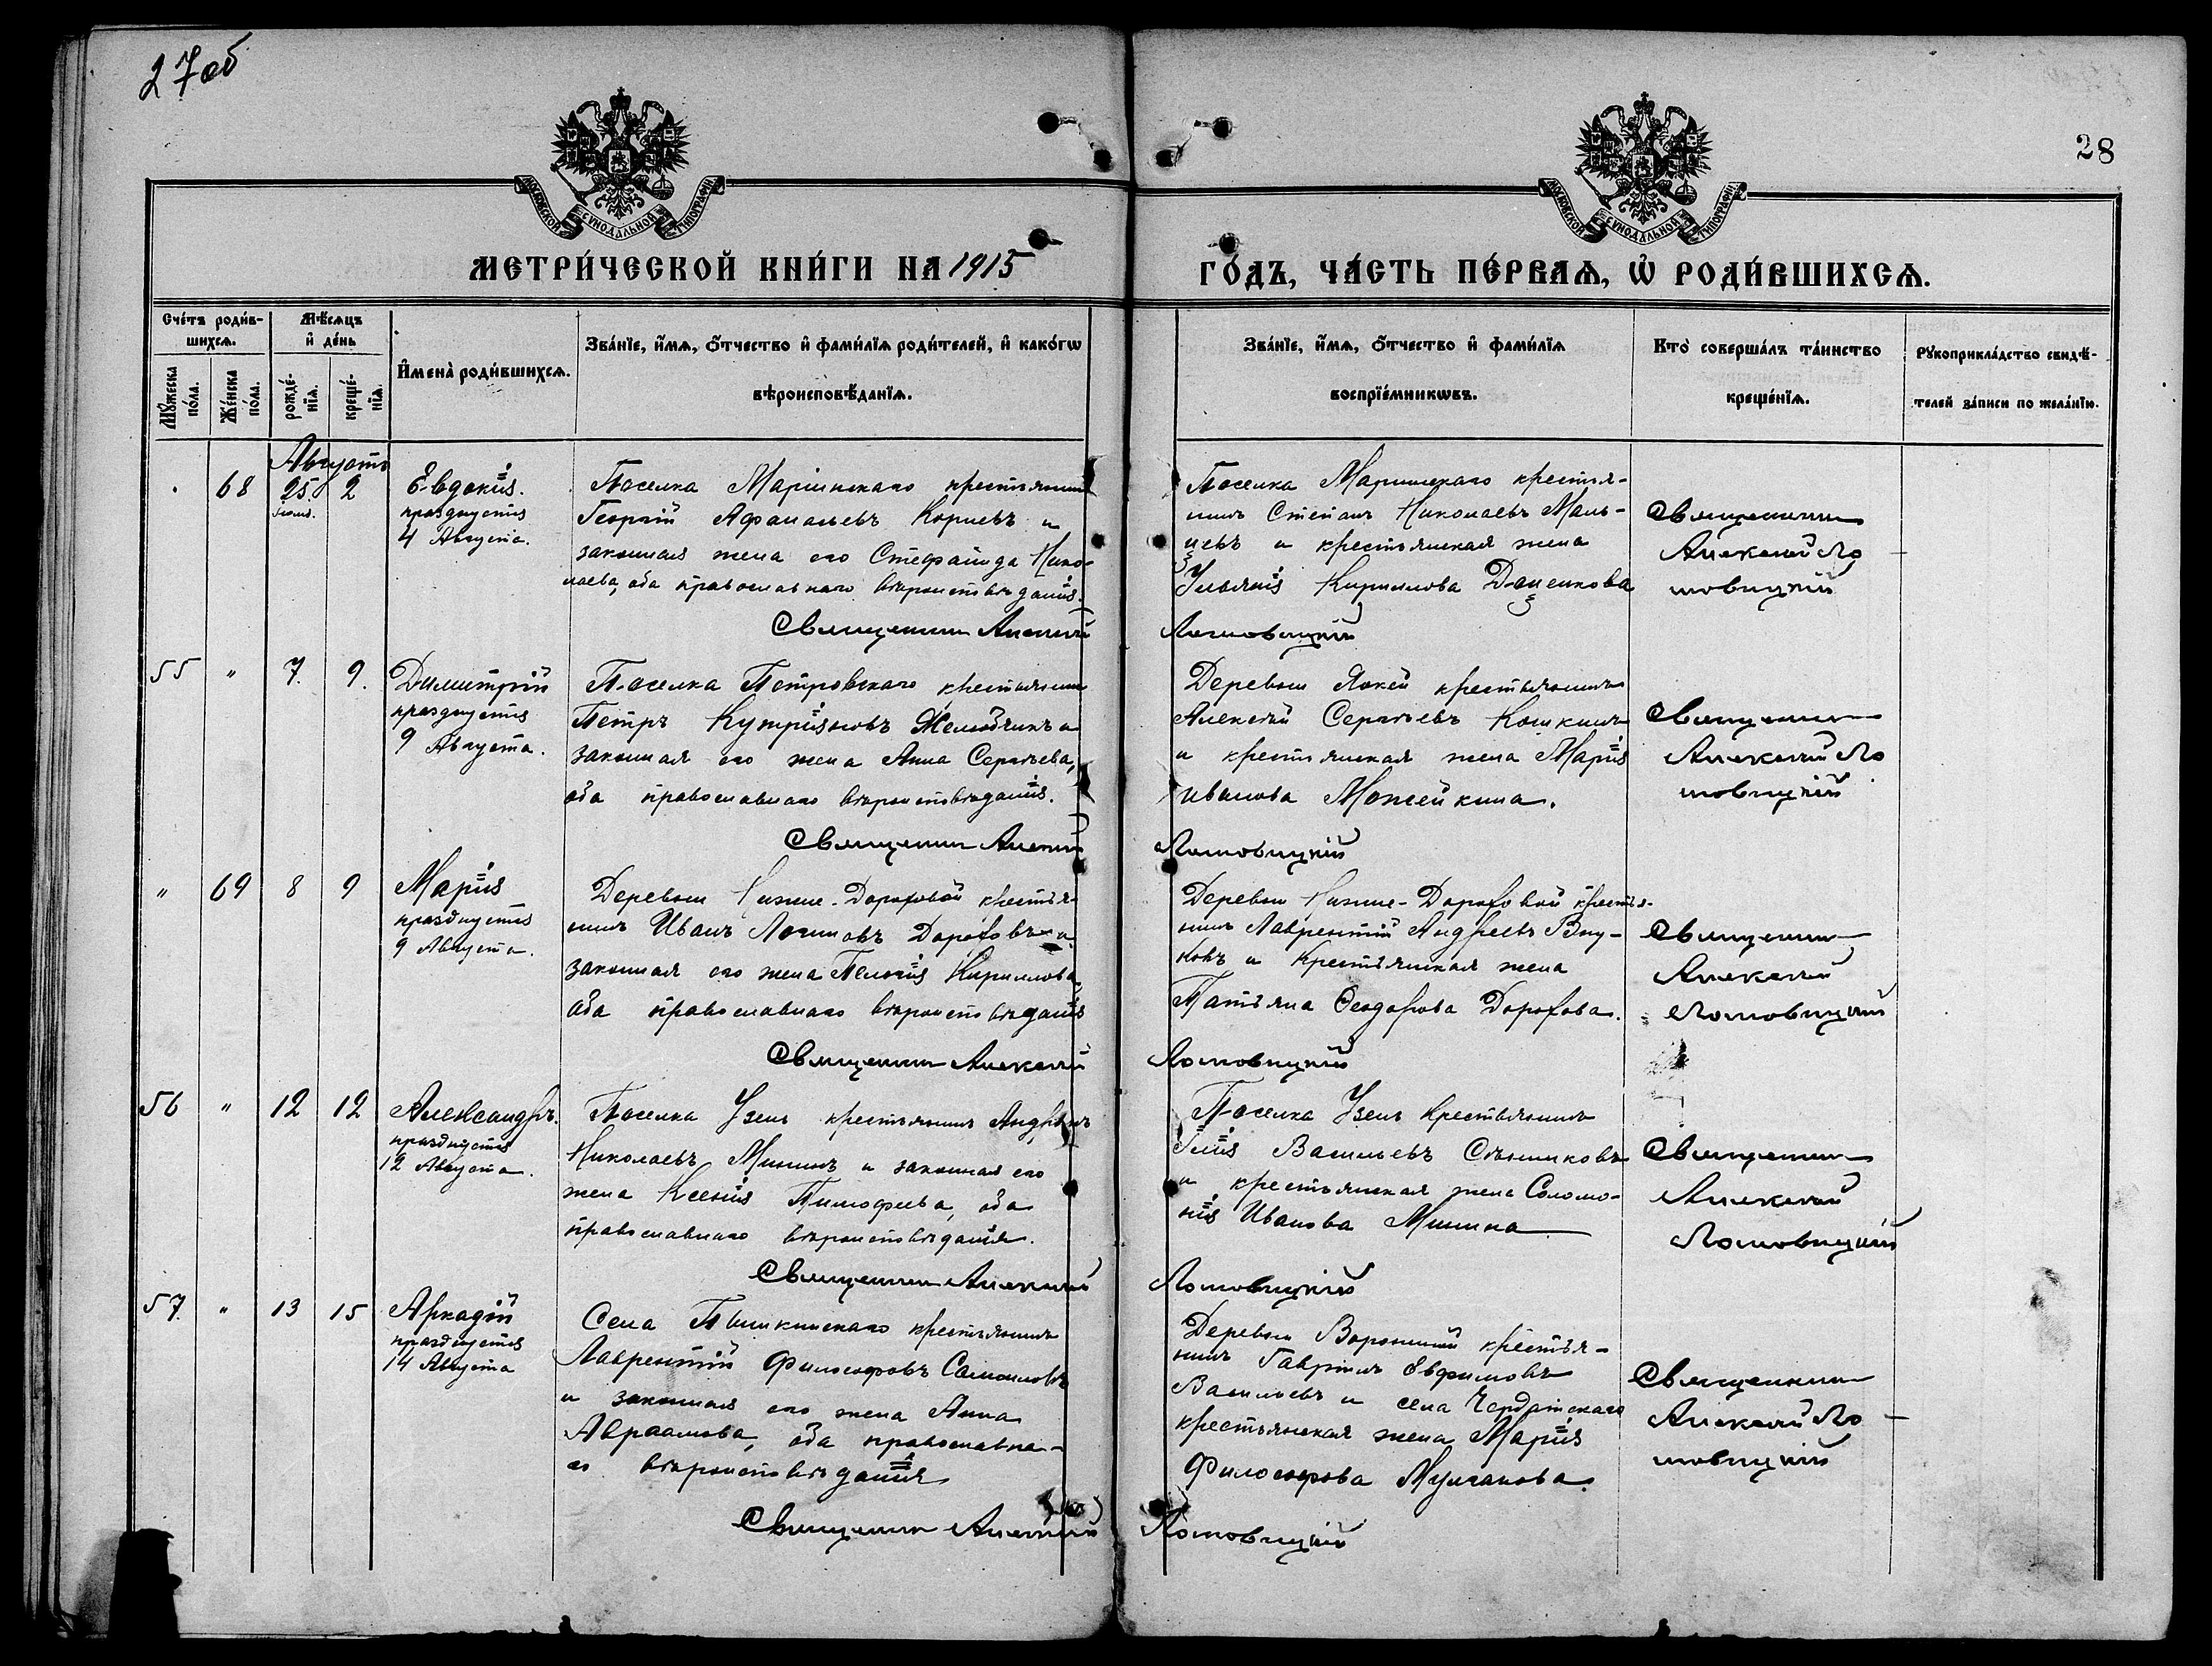 27 об
28
МОСКОВСКОЙ СѴНОДАЛЬНОЙ ТИПОГРАФІИ
МОСКОВСКОЙ СѴНОДАЛЬНОЙ ТИПОГРАФІИ
МЕТРИ́ЧЕСКОЙ КНИ́ГИ НА 1915
ГО́ДЪ, ЧА́СТЬ ПЕ́РВАѦ, Ѡ҆ РОДИ́ВШИХСѦ.
Сче́тъ роди́в-
шихсѧ.
Мꙋ́жеска по́ла.
Же́нска по́ла.
Мѣ́сѧцъ
и҆ де́нь
рожде́-нїѧ.
креще́-нїѧ.
И҆мена̀ роди́вшихсѧ.
Зва́нїе, и҆́мѧ, ѻ҆́тчество и҆ фами́лїѧ роди́телей, и҆ како́гѡ
вѣроисповѣ́данїѧ.
Зва́нїе, и҆́мѧ, ѻ҆́тчество и҆ фами́лїѧ
воспрїе́мникѡвъ.
Кто̀ соверша́лъ та́инство
креще́нїѧ.
Рꙋкоприкла́дство свидѣ́-
телей за́писи по жела́нїю.
Августъ
68 25 Іюля. 2
Евдокія.
празднуетъ
4 Августа.
Поселка Маріинскаго крестьянинъ
Георгій Афанасьевъ Корневъ и
законная жена его Стефанида Нико-
лаева, оба православнаго вѣроисповѣданія.
Священникъ Алексій
Поселка Маріинскаго крестья-
нинъ Степанъ Николаевъ Маль-
цевъ и крестьянская жена
Ульянія Кириллова Даценкова
Ломовицкій
Священникъ
Алексій Ло
мовицкій
55 " 7. 9.
Димитрій
празднуетъ
9 Августа.
Поселка Петровскаго крестьянинъ
Петръ Купріяновъ и
законная его жена Анна Сергѣева,
оба православнаго вѣроисповѣданія.
Священникъ Алексій
Деревни крестьянинъ
Алексѣй Сергѣевъ Кошкинъ
и крестьянская жена Марія
Иванова Можейкина.
Ломовицкій
Священникъ
Алексій Ло
мовицкій
" 69 8 9
Марія
празднуетъ
9 Августа.
Деревни Нижне-Дороховой крестья-
нинъ Иванъ Логиновъ Дороховъ и
законная его жена Пелагія Кириллова,
оба православнаго вѣроисповѣданія
Священникъ Алексій
Деревни Нижне-Дороховой крестья-
нинъ Лаврентій Андреевъ Вну-
ковъ и крестьянская жена
Татьяна Ѳеодорова Дорохова.
Ломовицкій
Священникъ
Алексій
Ломовицкій
56 " 12 12
Александръ.
празднуетъ
12 Августа.
Поселка Узень крестьянинъ Андрей
Николаевъ Мининъ и законная его
жена Ксенія Тимофеева, оба
православнаго вѣроисповѣданія.
Священникъ Алексій
Поселка Узень крестьянинъ
Илія Васильевъ
и крестьянская жена Соломо-
нія Иванова Минина
Ломовицкій
Священникъ
Алексій
Ломовицкій
57. " 13 15
Аркадій
празднуетъ
14 Августа
Села Пышкинскаго крестьянинъ
Лаврентій Философовъ Самойловъ
и законная его жена Анна
Авраамова, оба православна-
го вѣроисповѣданія
Священникъ Алексій
Деревни Ворониной крестья-
нинъ Гавріилъ Евфимовъ
Васильевъ и села Чердатскаго
крестьянская жена Марія
Философова Мулчанова.
Ломовицкій
Священникъ
Алексій Ло
мовицкій